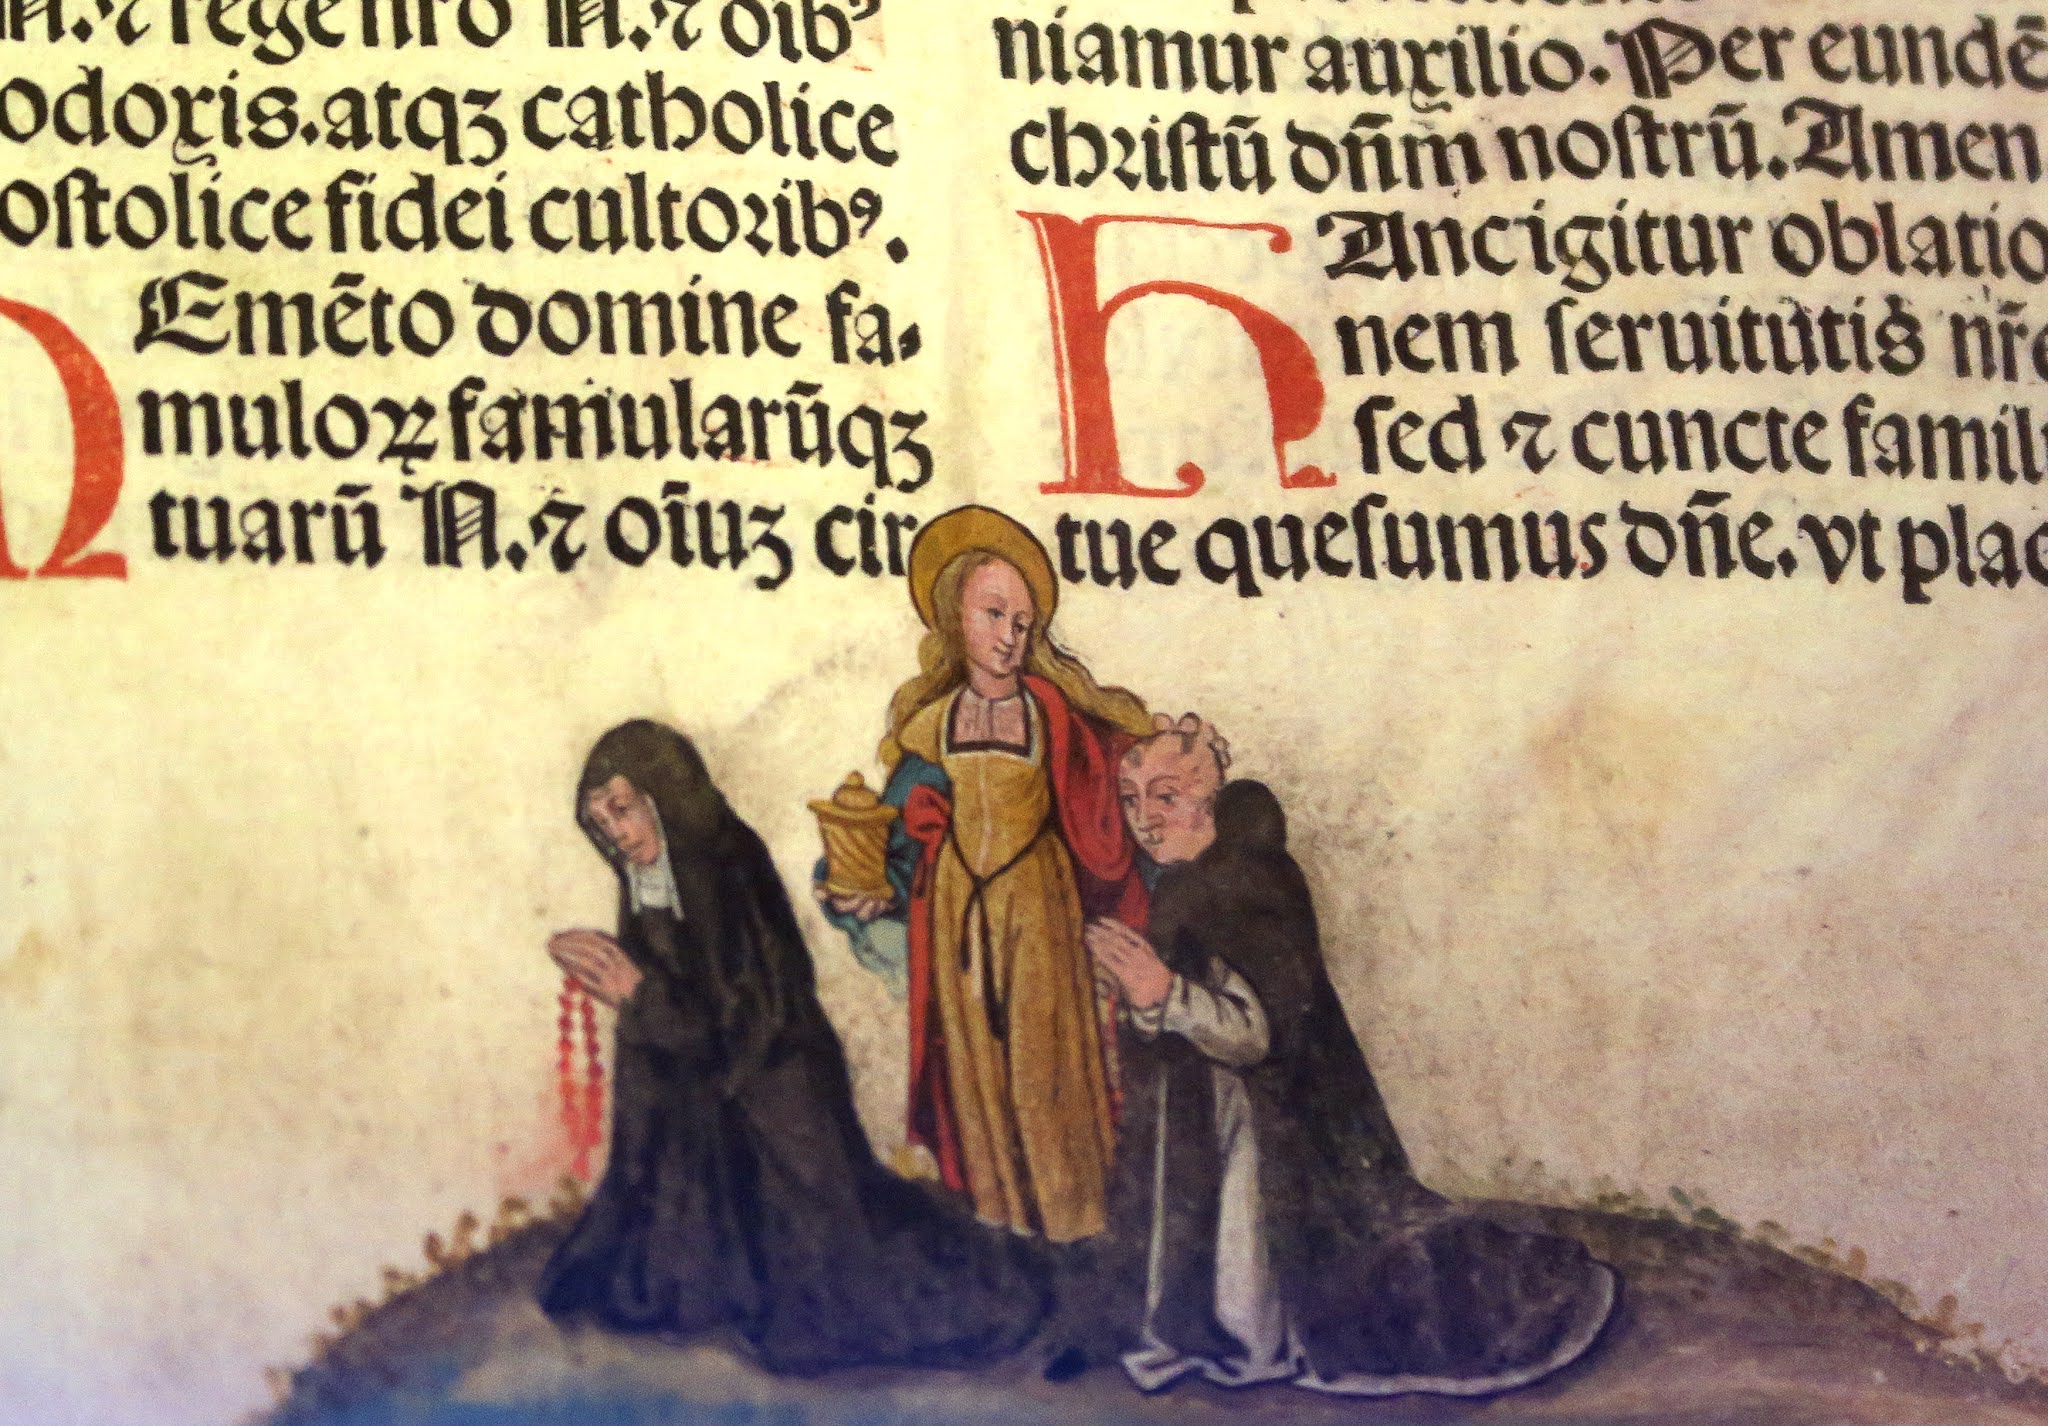 N. ⁊ regenro N. ⁊ oib⁹
odoxis. atqꝫ catholice
oſtolice fidei cultorib⁹.
MEmēto domine fa⸗
muloꝝ famularūqꝫ
tuarū N. ⁊ oīuꝫ cir
niamur auxilio. Per eundē
chriſtū dn̄m noſtrū. Amen
hAnc igitur oblatio
nem ſeruitutis nr̄e
ſed ⁊ cuncte famili
tue queſumus dn̄e. vt plac